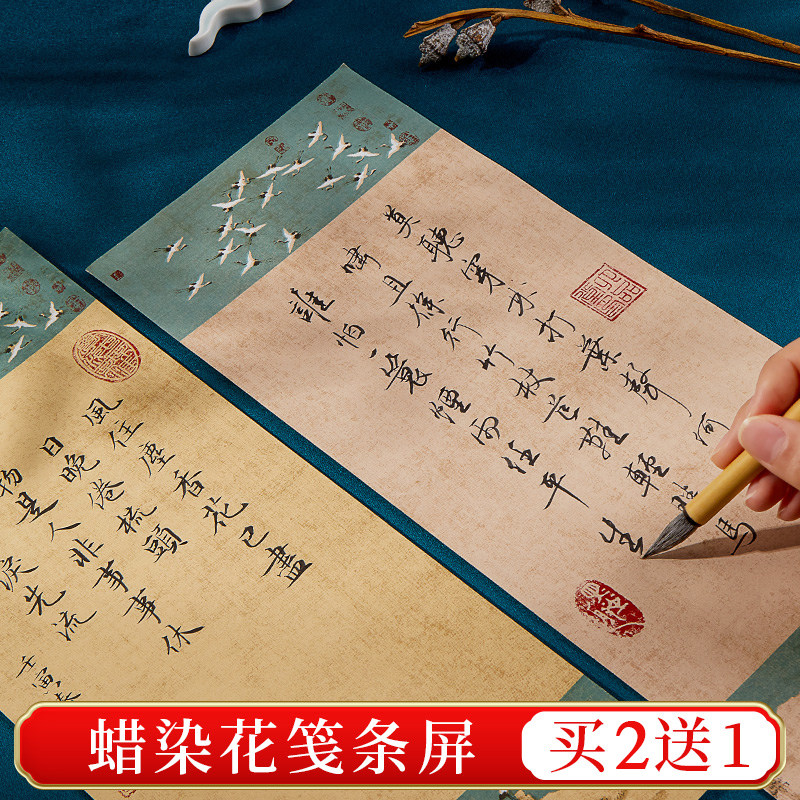 莫聽穿林打葉聲何
嘯且徐行竹杖芒鞋輕勝馬
誰怕一蓑煙雨任平生
風住塵香花已盡
日晚倦梳頭
物是人非事事休
淚先流
壬寅春
蜡染花笺条屏
买2送1